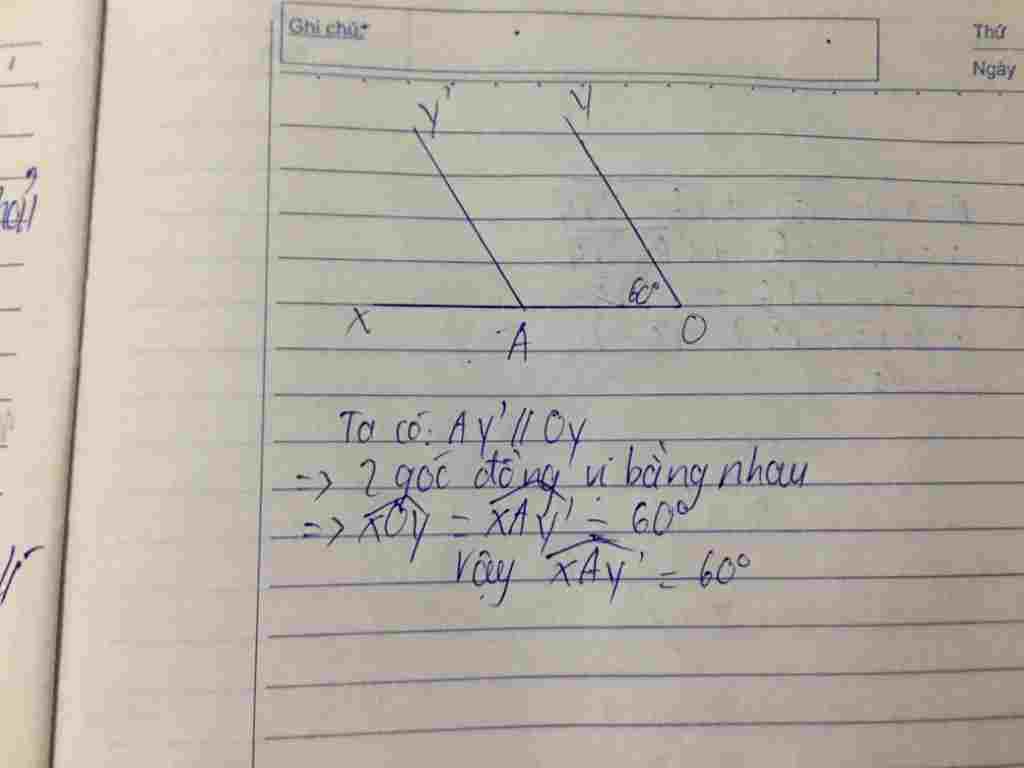 Ghi chú:
Thứ
Ngày
y'
y
60°
x
A
O
Ta có: Ay' // Oy
=> 2 góc đồng vị bằng nhau
=> xOy = xAy' = 60°
Vậy xAy' = 60°